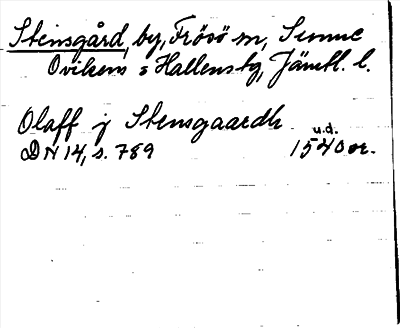 Stensgård, by, Frösö sn, Sunne
Ovikens o Hallens tg, Jämtl. l.
Olaff j Stensgaardh
u.d.
DN 14, s. 789 1540 or.